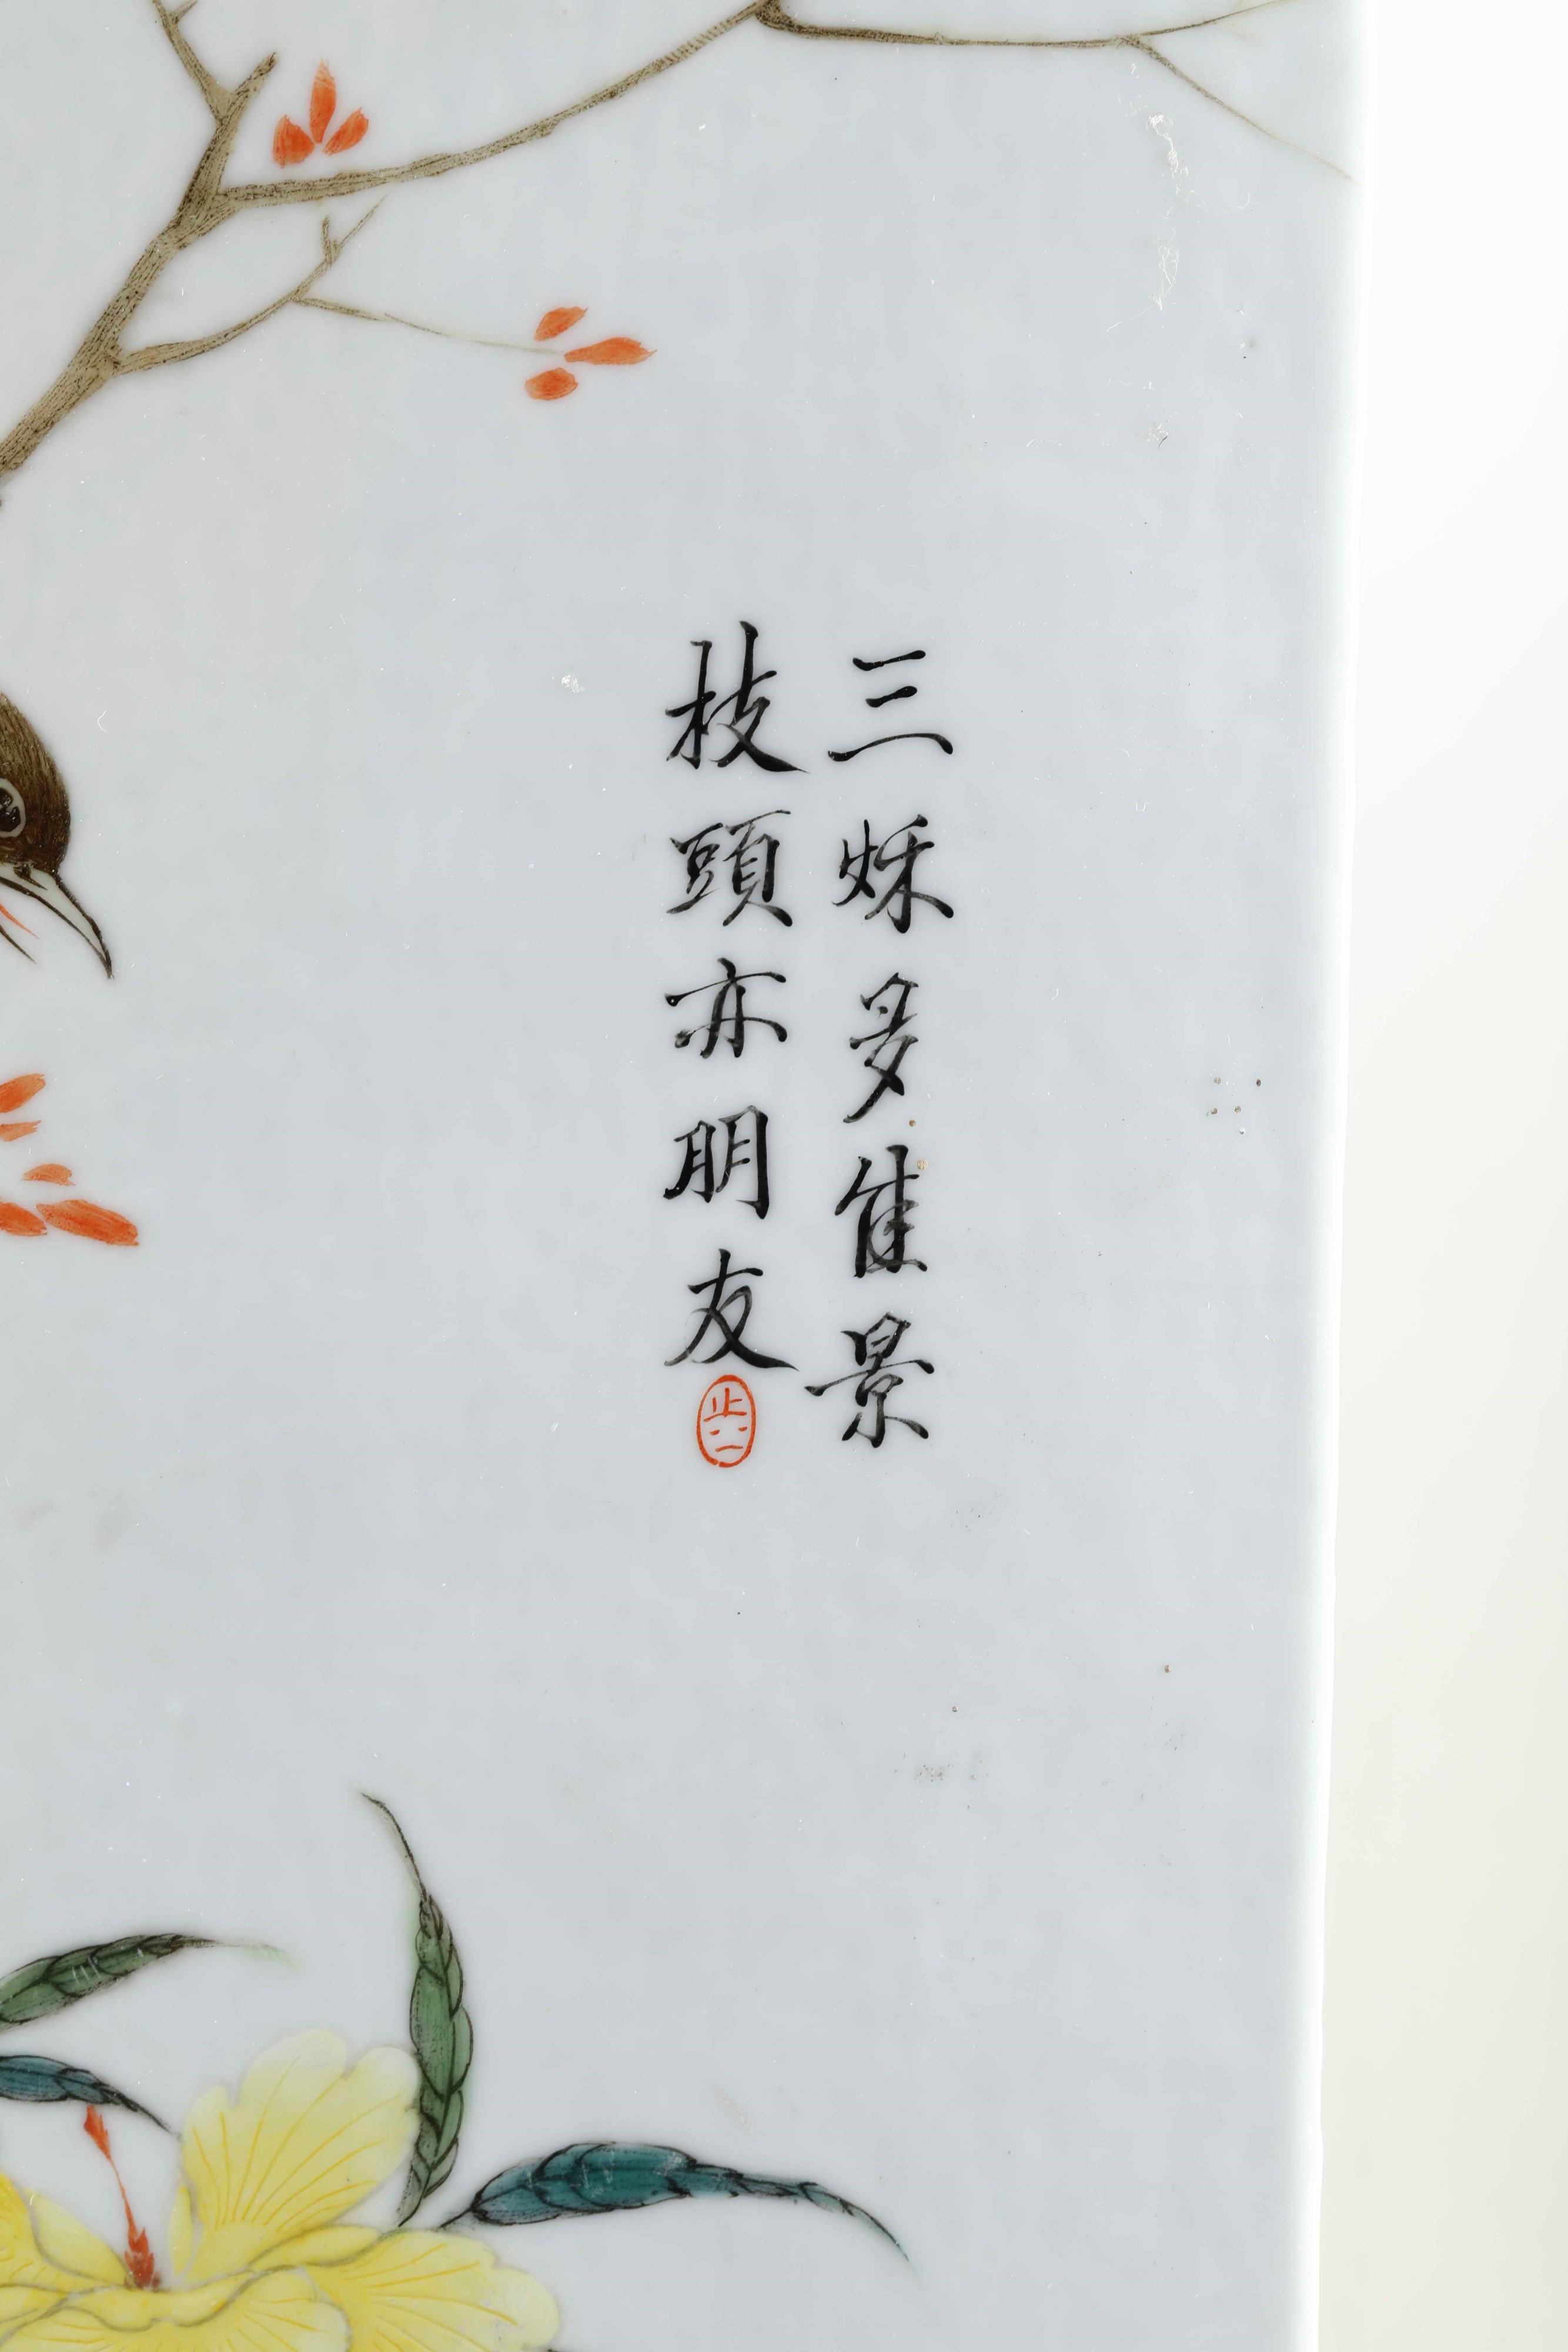 三秌多佳景
枝頭亦朋友